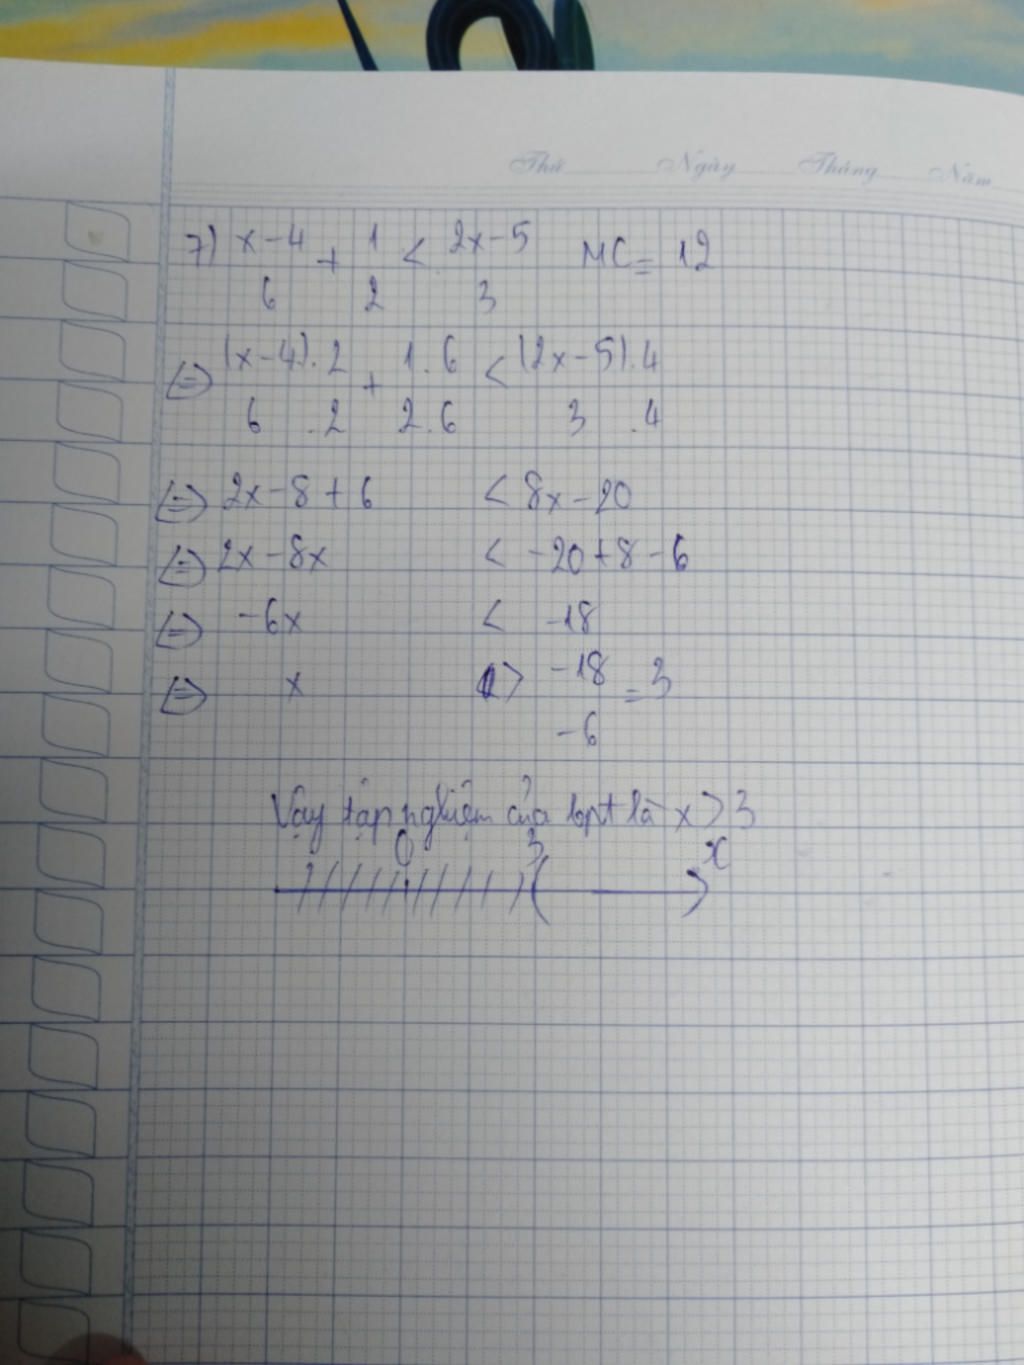 Thứ Ngày Tháng Năm
7) x-4 + 1 < 2x-5 MC = 12
6 2 3
(=) (x-4).2 + 1.6 < (2x-5).4
6 .2 2.6 3 .4
(=) 2x-8+6 < 8x-20
(=) 2x-8x < -20+8-6
(=) -6x < -18
(=) x > -18 = 3
-6
Vậy tập nghiệm của bpt là x > 3
0 3 x